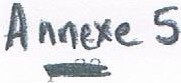 Annexe 5